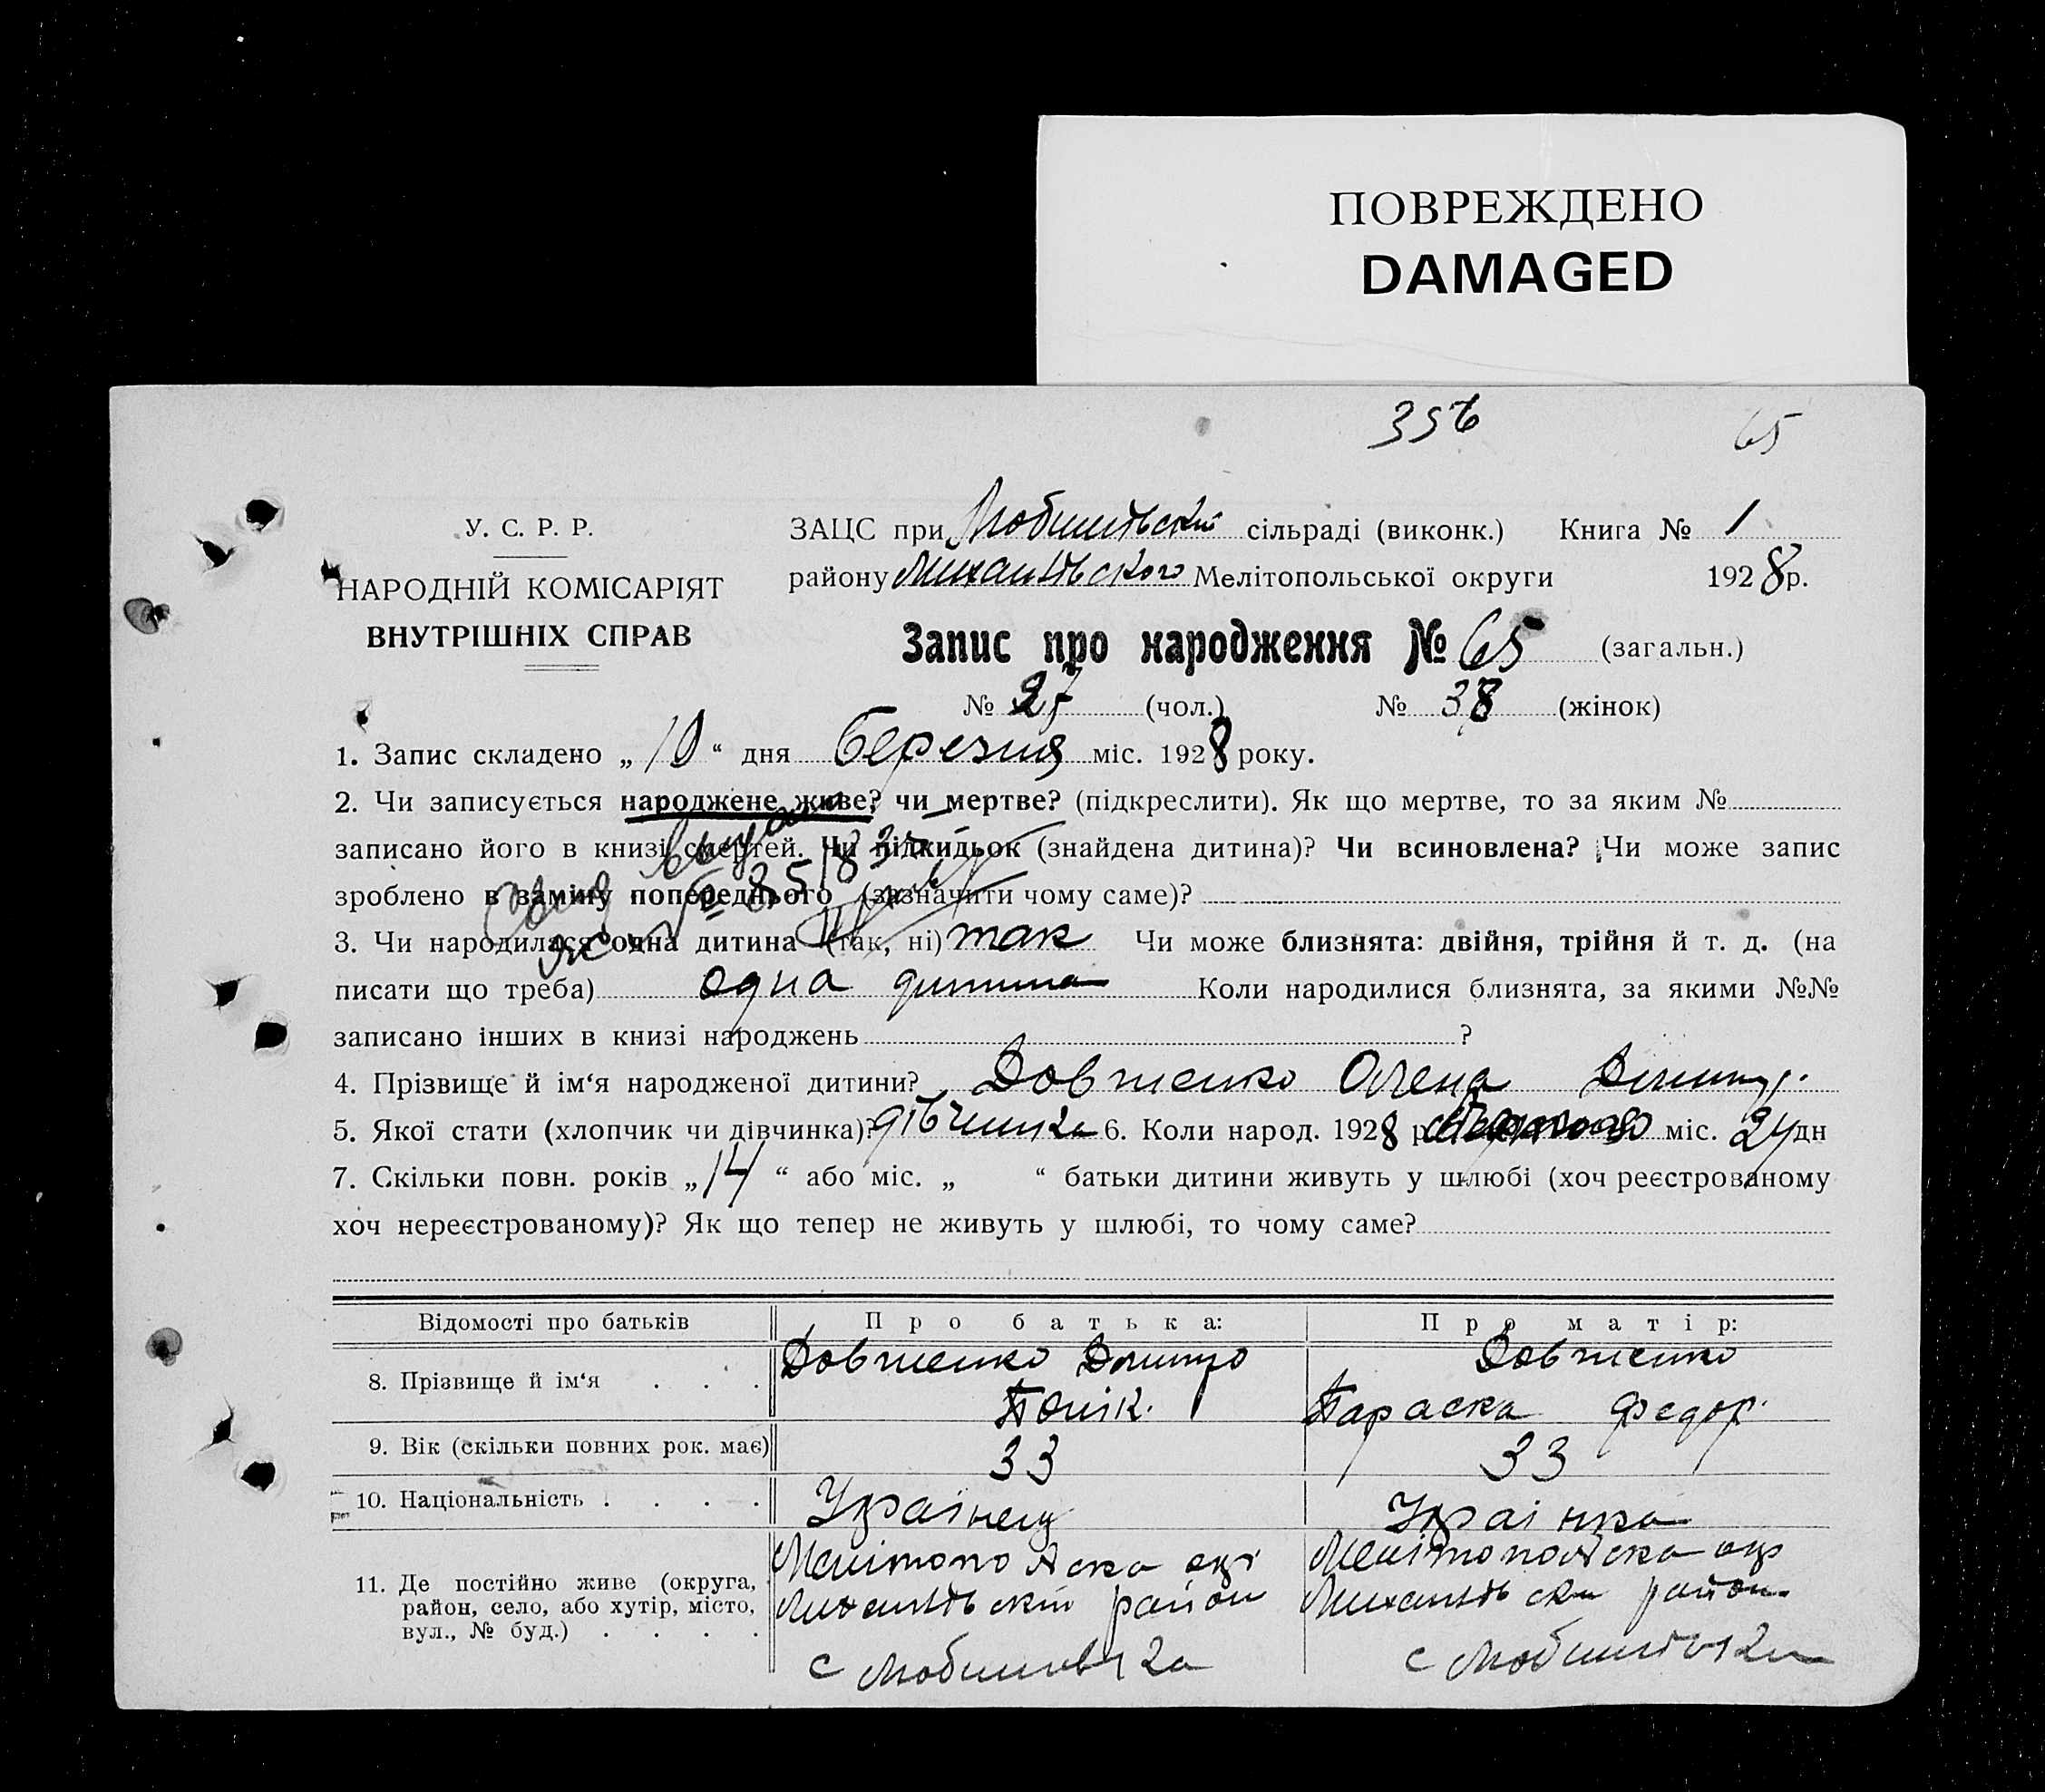 ПОВРЕЖДЕНО
DAMAGED
356
65
У. С. Р. Р.
НАРОДНІЙ КОМІСАРІЯТ
ВНУТРІШНІХ СПРАВ
ЗАЦС при сільраді (виконк.) Книга № 1
району Мелітопольської округи 1928 р.
Запис про народження № 65 (загальн.)
№ 27 (чол.) № 38 (жінок)
1. Запис складено „ 10 “ дня березня міс. 1928 року.
2. Чи записується народжене живе? чи мертве? (підкреслити). Як що мертве, то за яким №
записано його в книзі смертей. Чи підкидьок (знайдена дитина)? Чи всиновлена? Чи може запис
зроблено в заміну попереднього (зазначити чому саме)?
3. Чи народилася одна дитина (так, ні) так Чи може близнята: двійня, трійня й т. д. (на
писати що треба) одна дитина Коли народилися близнята, за якими №№
записано інших в книзі народжень ?
4. Прізвище й ім‘я народженої дитини? Довженко Олена Дмитр.
5. Якої стати (хлопчик чи дівчинка)? дівчинка 6. Коли народ. 1928 р. міс. 24 дн
7. Скільки повн. років „ 14 “ або міс. „ “ батьки дитини живуть у шлюбі (хоч реєстрованому
хоч нереєстрованому)? Як що тепер не живуть у шлюбі, то чому саме?
Відомості про батьків Про батька: Про матір:
8. Прізвище й ім‘я . . . Довженко Дмитро Довженко
Параска Федор.
9. Вік (скільки повних рок. має) 33 33
10. Національність . . . . Українец Українка
11. Де постійно живе (округа,
район, село, або хутір, місто,
вул., № буд.) . . . .
район район
с с